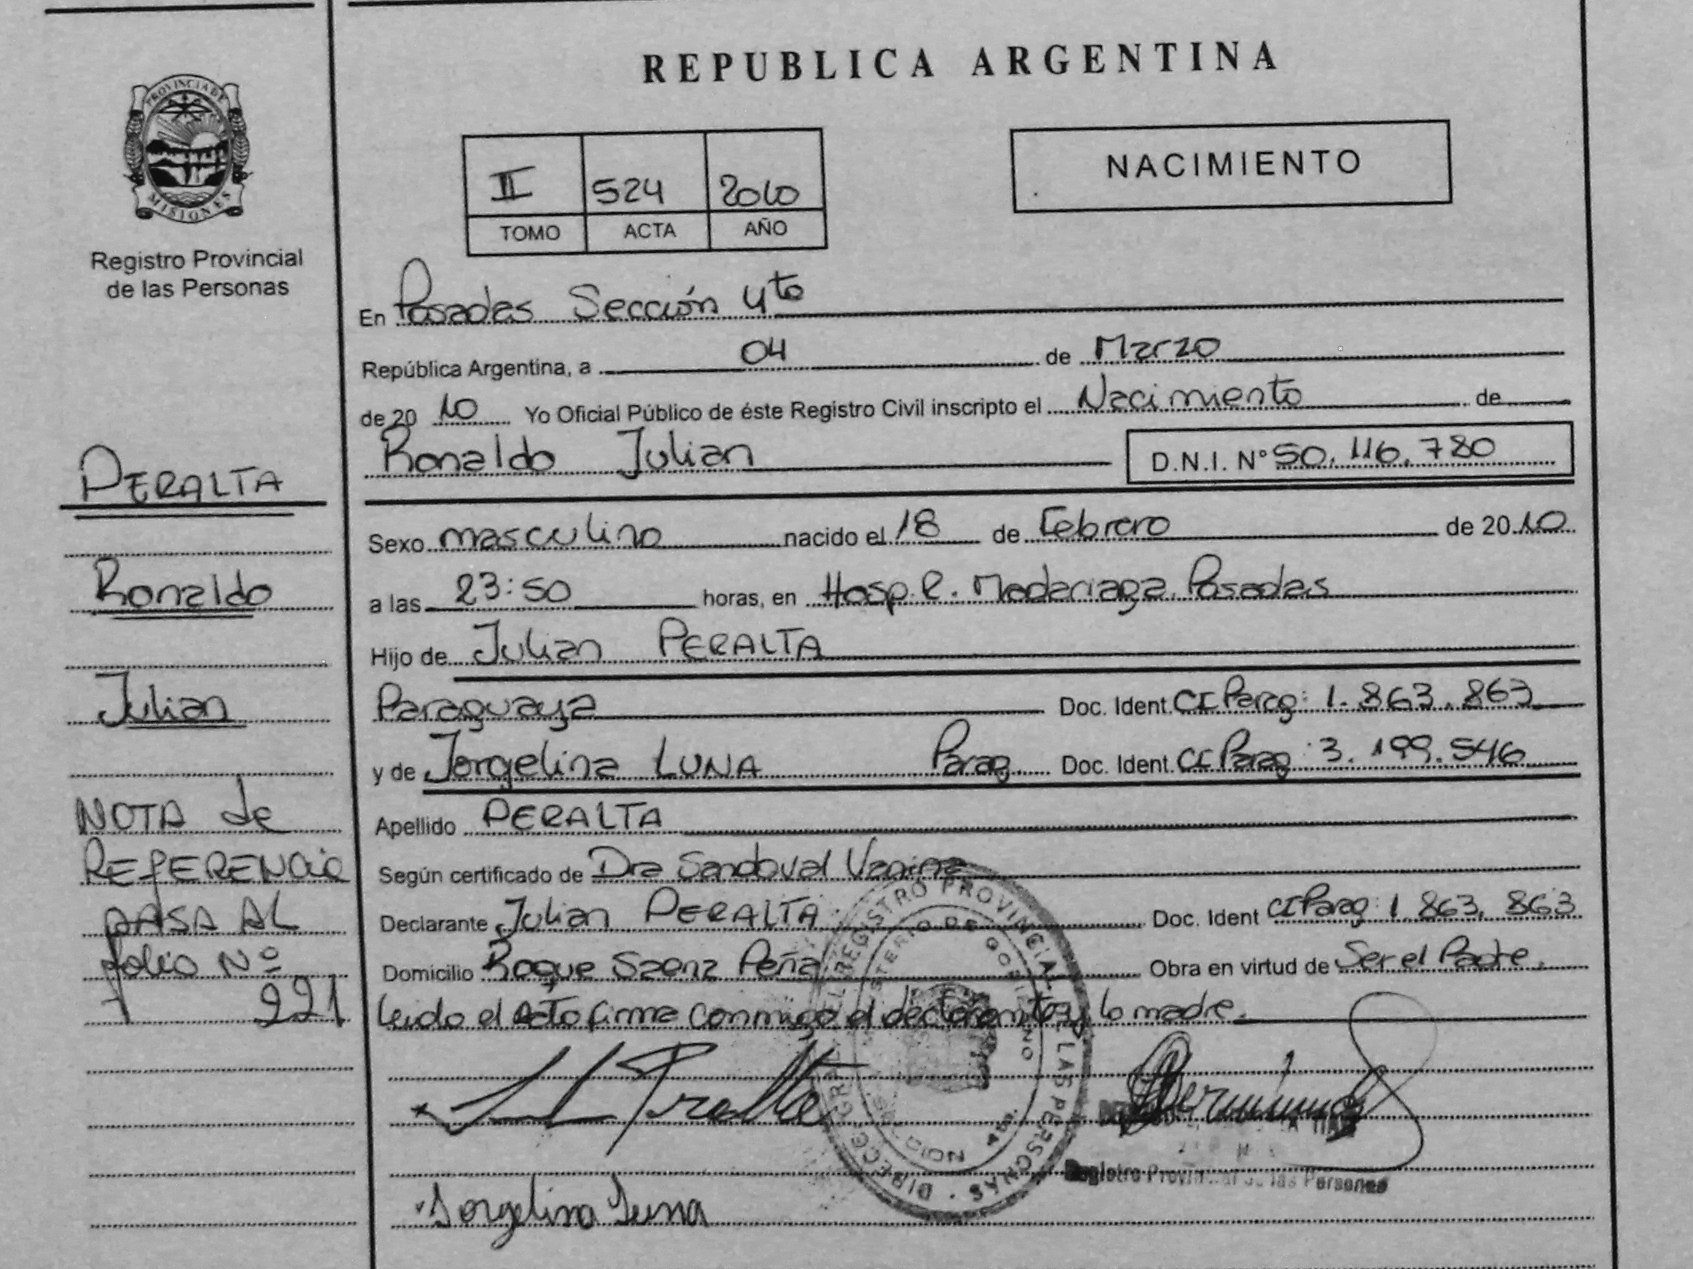 REPUBLICA ARGENTINA
PROVINCIA DE
MISIONES
Registro Provincial
de las Personas
II 524 2010
TOMO ACTA AÑO
NACIMIENTO
En Posadas Sección 4ta
República Argentina, a 04 de Marzo
de 2010 Yo Oficial Público de éste Registro Civil inscripto el Nacimiento de
Ronaldo Julian D.N.I. N° 50.116.780
Sexo masculino nacido el 18 de Febrero de 2010
a las 23:50 horas, en Hosp. R. Madariaga. Posadas
Hijo de Julian PERALTA
Paraguaya Doc. Ident. CI Parag: 1.863.863
y de Jorgelina LUNA Parag. Doc. Ident. CI Parag: 3.199.546
Apellido PERALTA
Según certificado de Dra Sandoval Vanina
Declarante Julian PERALTA Doc. Ident CI Parag: 1.863.863
Domicilio Roque Saenz Peña Obra en virtud de Ser el Padre.
Leido el acto firma conmigo el declarante y la madre.
PERALTA
Ronaldo
Julian
NOTA de
REFERENCIA
PASA AL
folio Nº
221
Jorgelina Luna
REGISTRO PROVINCIAL DE LAS PERSONAS
Registro Provincial de las Personas